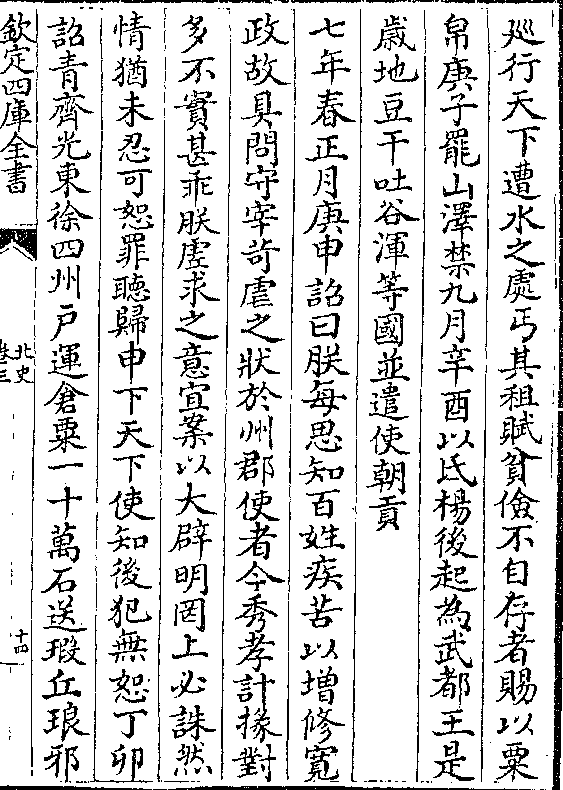 廵行天下遭水之處丐其租賦貧儉不自存者賜以粟
帛庚子罷山澤禁九月辛酉以氐楊後起為武都王是
歲地豆干吐谷渾等國並遣使朝貢
七年春正月庚申詔曰朕每思知百姓疾苦以增修寛
政故具問守宰苛虐之狀於州郡使者今秀孝計掾對
多不實甚乖朕虛求之意宜案以大辟明罔上必誅然
情猶未忍可恕罪聽歸申下天下使知後犯無恕丁卯
詔青齊光東徐四州戸運倉粟一十萬石送瑕丘琅邪
欽定四庫全書
北史
卷三
十四